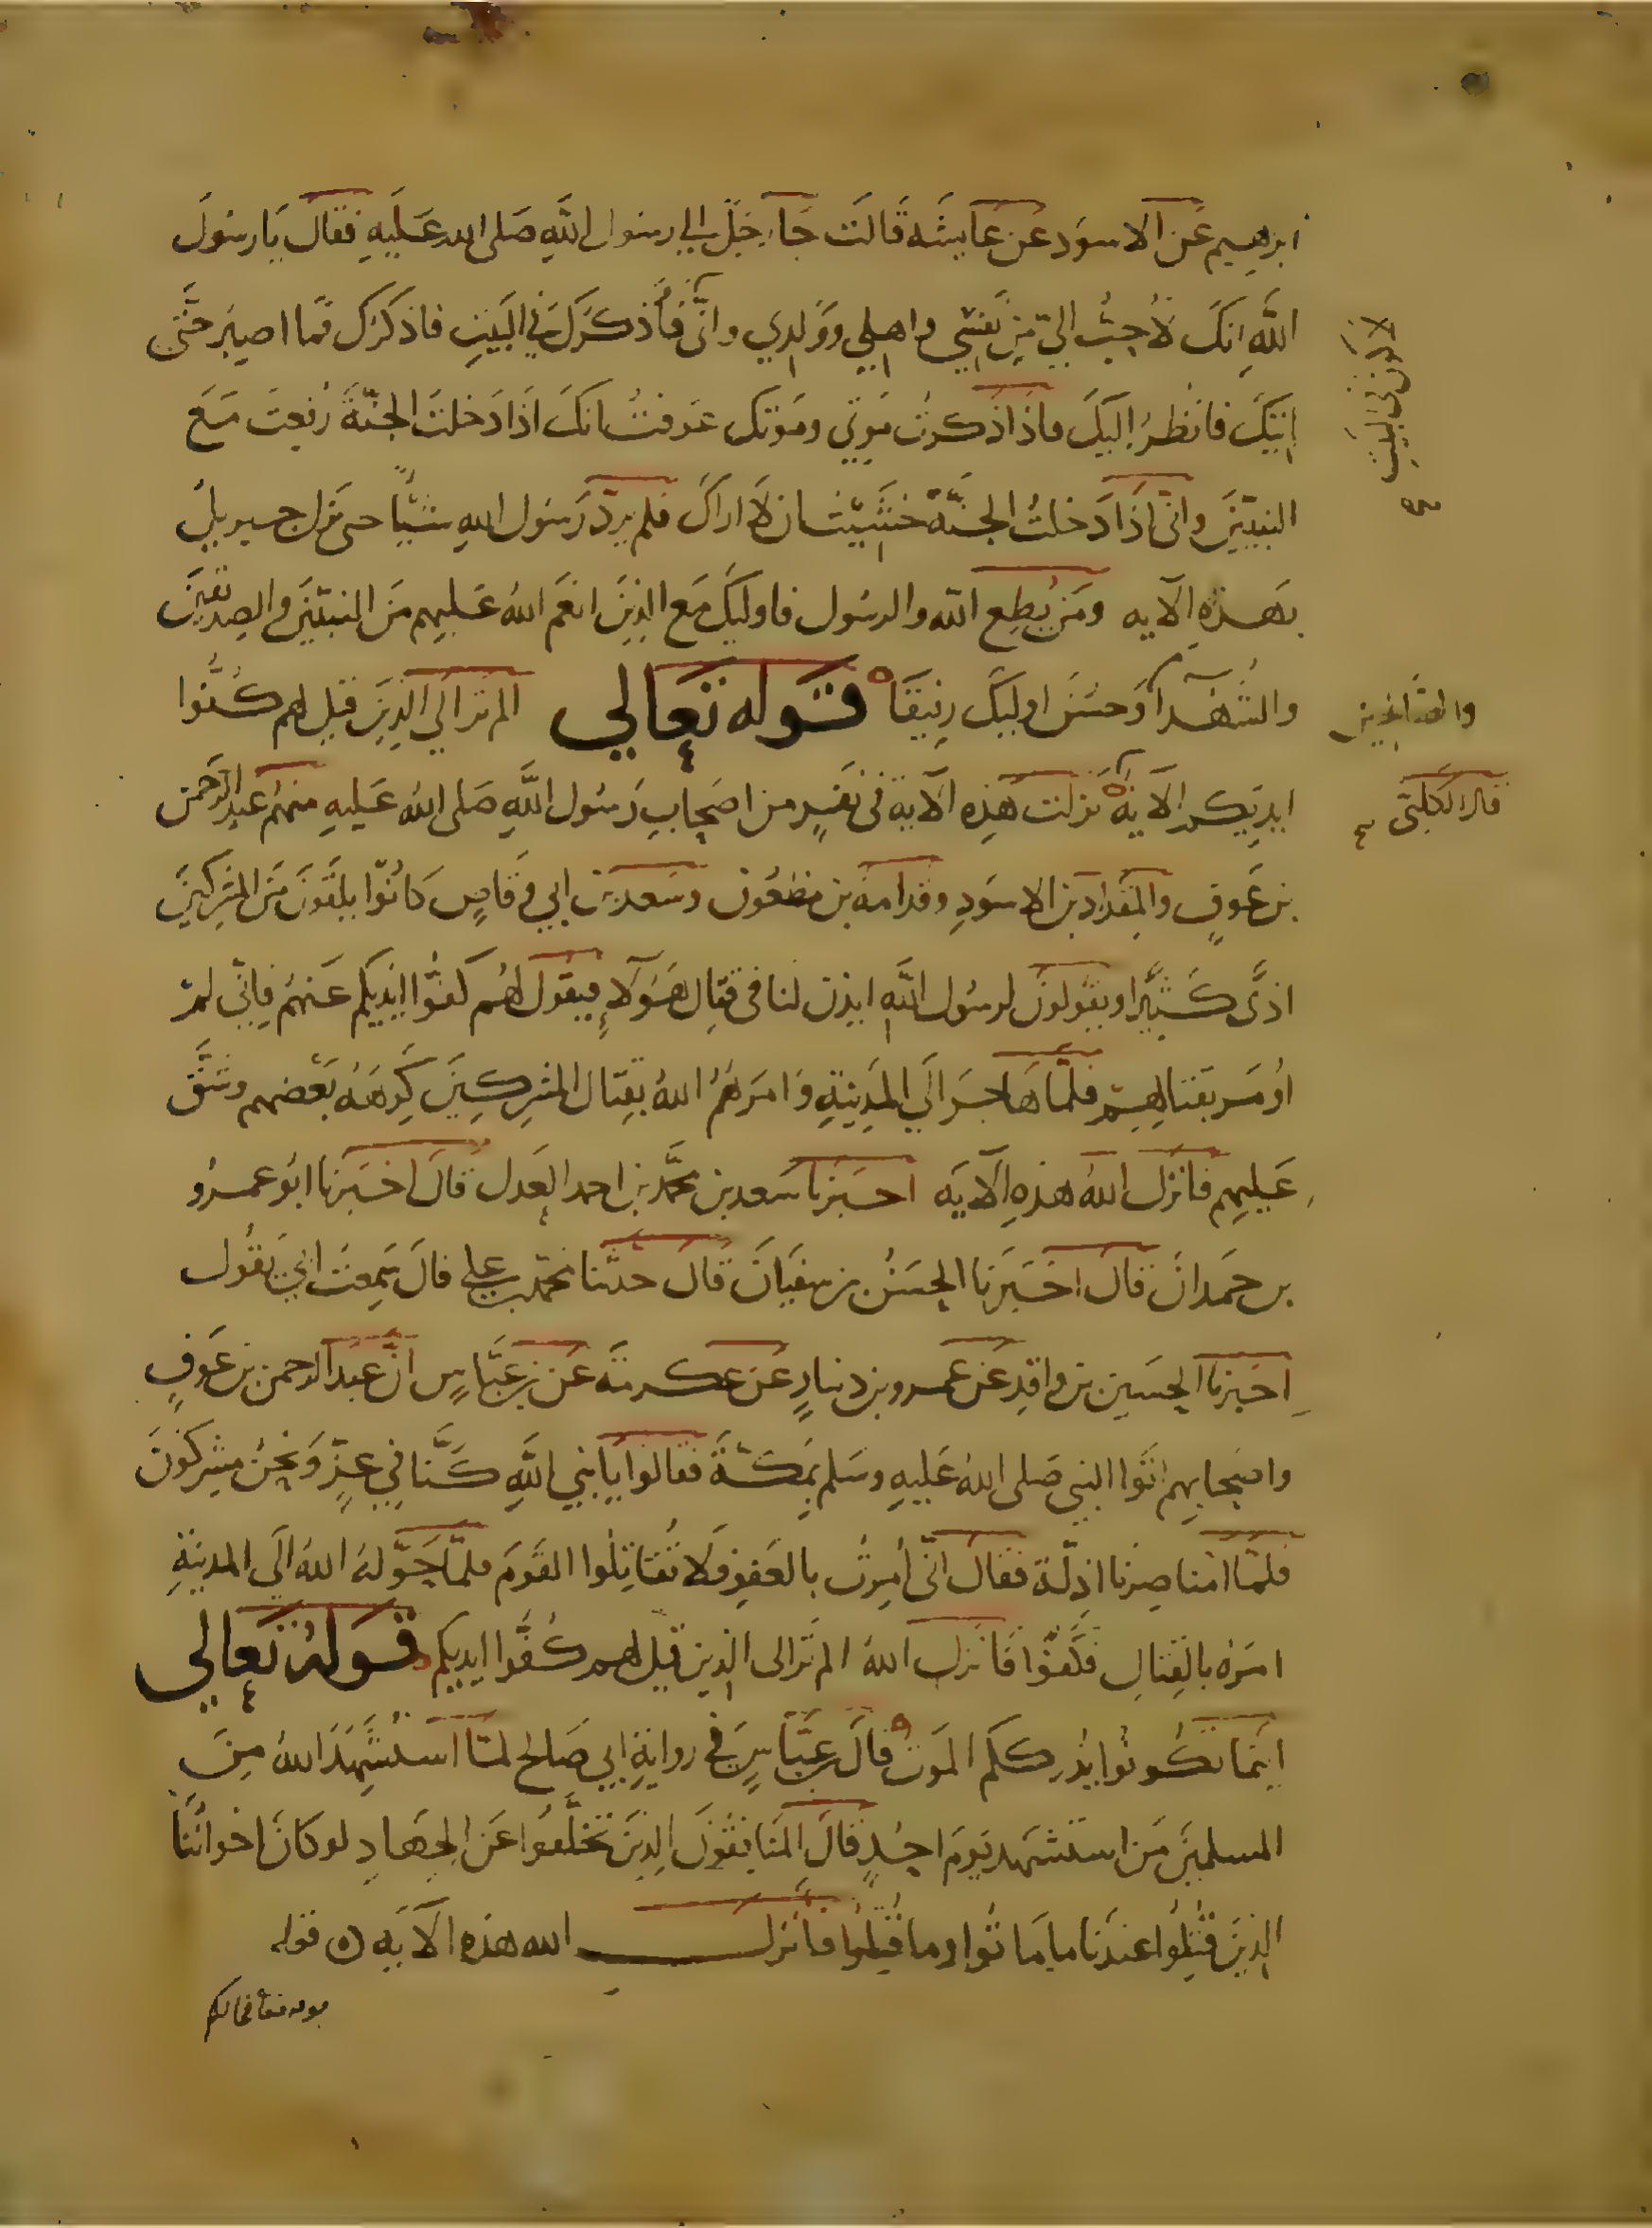 ابرهيم عن الاسود عن عايشة قالت جا رجل الي رسول الله صلى الله عليه فقال يا رسول
الله انك لاحب اليّ من نفسي واهلي وولدي واني فاذكرك في البيت فاذكرك فما اصبر حتى
لاكون في البيت صح
اتيك فانظر اليك فاذا ذكرت موتي وموتك عرفت انك اذا دخلت الجنة رفعت مع
النبيين واني اذا دخلت الجنة خشيت ان لا اراك فلم يردّ رسول الله شيًا حى نزل جبريل
بهذه الآيه ومن يطع الله والرسول فاوليك مع الذين انعم الله عليهم من النبيين والصديقين
والشهدآ وحسن اوليك رفيقا قوله تعالي الم تر الي الذين قيل لهم كفّوا
والصالحين
ايديكم الآية نزلت هذه الآية في نفر من اصحاب رسول الله صلى الله عليه منهم عبد الرحمن
قال الكلبي
بن عوف والمقداد بن الاسود وقدامة بن مظعون وسعد بن ابي وقاص كانوا يلقون من المشركين
اذًى كثيرا ويقولون لرسول الله ايذن لنا في قتال هؤلآء فيقول لهم كفّوا ايديكم عنهم فاني لم
اومر بقتالهم فلما هاجر الي المدينة وامرهم الله بقتال المشركين كرهه بعضهم وشقّ
عليهم فانزل الله هذه الآيه اخبرنا سعد بن محمد بن احمد العدل قال اخبرنا ابو عمرو
بن حمدان قال اخبرنا الحسن بن سفيان قال حدثنا محمد بن علي قال سمعت ابي يقول
اخبرنا الحسين بن واقد عن عمرو بن دينار عن عكرمة عن بن عبّاس انّ عبد الرحمن بن عوف
واصحابهم اتوا النبي صلى الله عليه وسلم بمكة فقالوا يا نبي الله كنّا في عزّ ونحن مشركون
فلمّا امنا صرنا اذلّة فقال انّي امرت بالعفو فلا تقاتلوا القوم فلمّا حوّله الله الي المدينة
امره بالقتال فكفّوا فانزل الله الم تر الى الذين قيل لهم كفّوا ايديكم قوله تعالي
اينما تكونوا يدرككم الموت قال بن عبّاس في رواية ابي صالح لمّا استشهد الله من
المسلمين من استشهد يوم احد قال المنافقون الذين تخلّفوا عن الجهاد لو كان اخواننا
الذين قتلوا عندنا ما ماتوا وما قتلوا فانزل الله هذه الآيه قوله